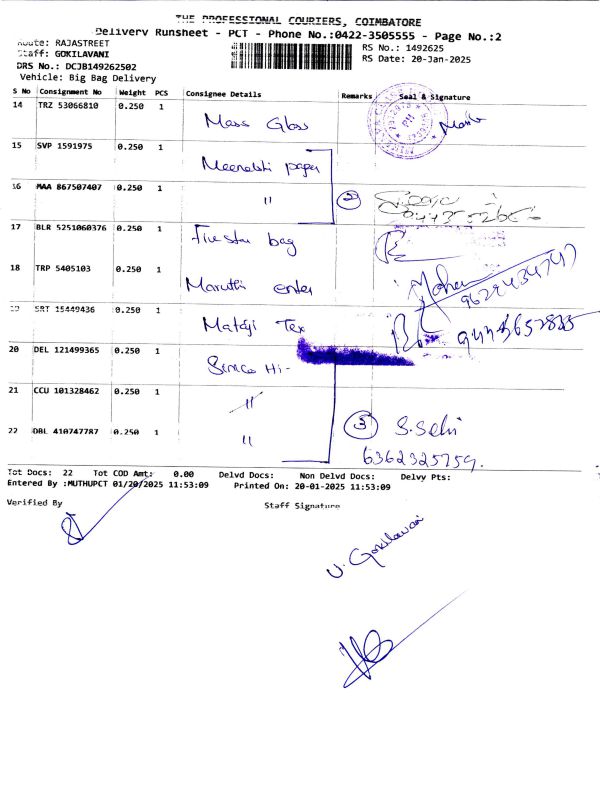 THE PROFESSIONAL COURIERS, COIMBATORE
Delivery Runsheet - PCT - Phone No.:0422-3505555 - Page No.:2
Route: RAJASTREET
Staff: GOKILAVANI
DRS No.: DCJB149262502
Vehicle: Big Bag Delivery
RS No.: 1492625
RS Date: 20-Jan-2025
S No Consignment No Weight PCS Consignee Details Remarks Seal & Signature
14 TRZ 53066810 0.250 1 Mass Glass
15 SVP 1591975 0.250 1 Meenakshi paper
16 MAA 867507407 0.250 1 "
2
17 BLR 5251060376 0.250 1 Five star bag
18 TRP 5405103 0.250 1 Maruthi enter
Mohan
9629434747
19 SRT 15449436 0.250 1 Mataji Tex
20 DEL 121499365 0.250 1 Hi-
21 CCU 101328462 0.250 1 "
22 DBL 410747787 0.250 1 "
3 S. Selvi
6362325759.
Tot Docs: 22 Tot COD Amt: 0.00 Delvd Docs: Non Delvd Docs: Delvy Pts:
Entered By :MUTHUPCT 01/20/2025 11:53:09 Printed On: 20-01-2025 11:53:09
Verified By Staff Signature
V. Gokilavani